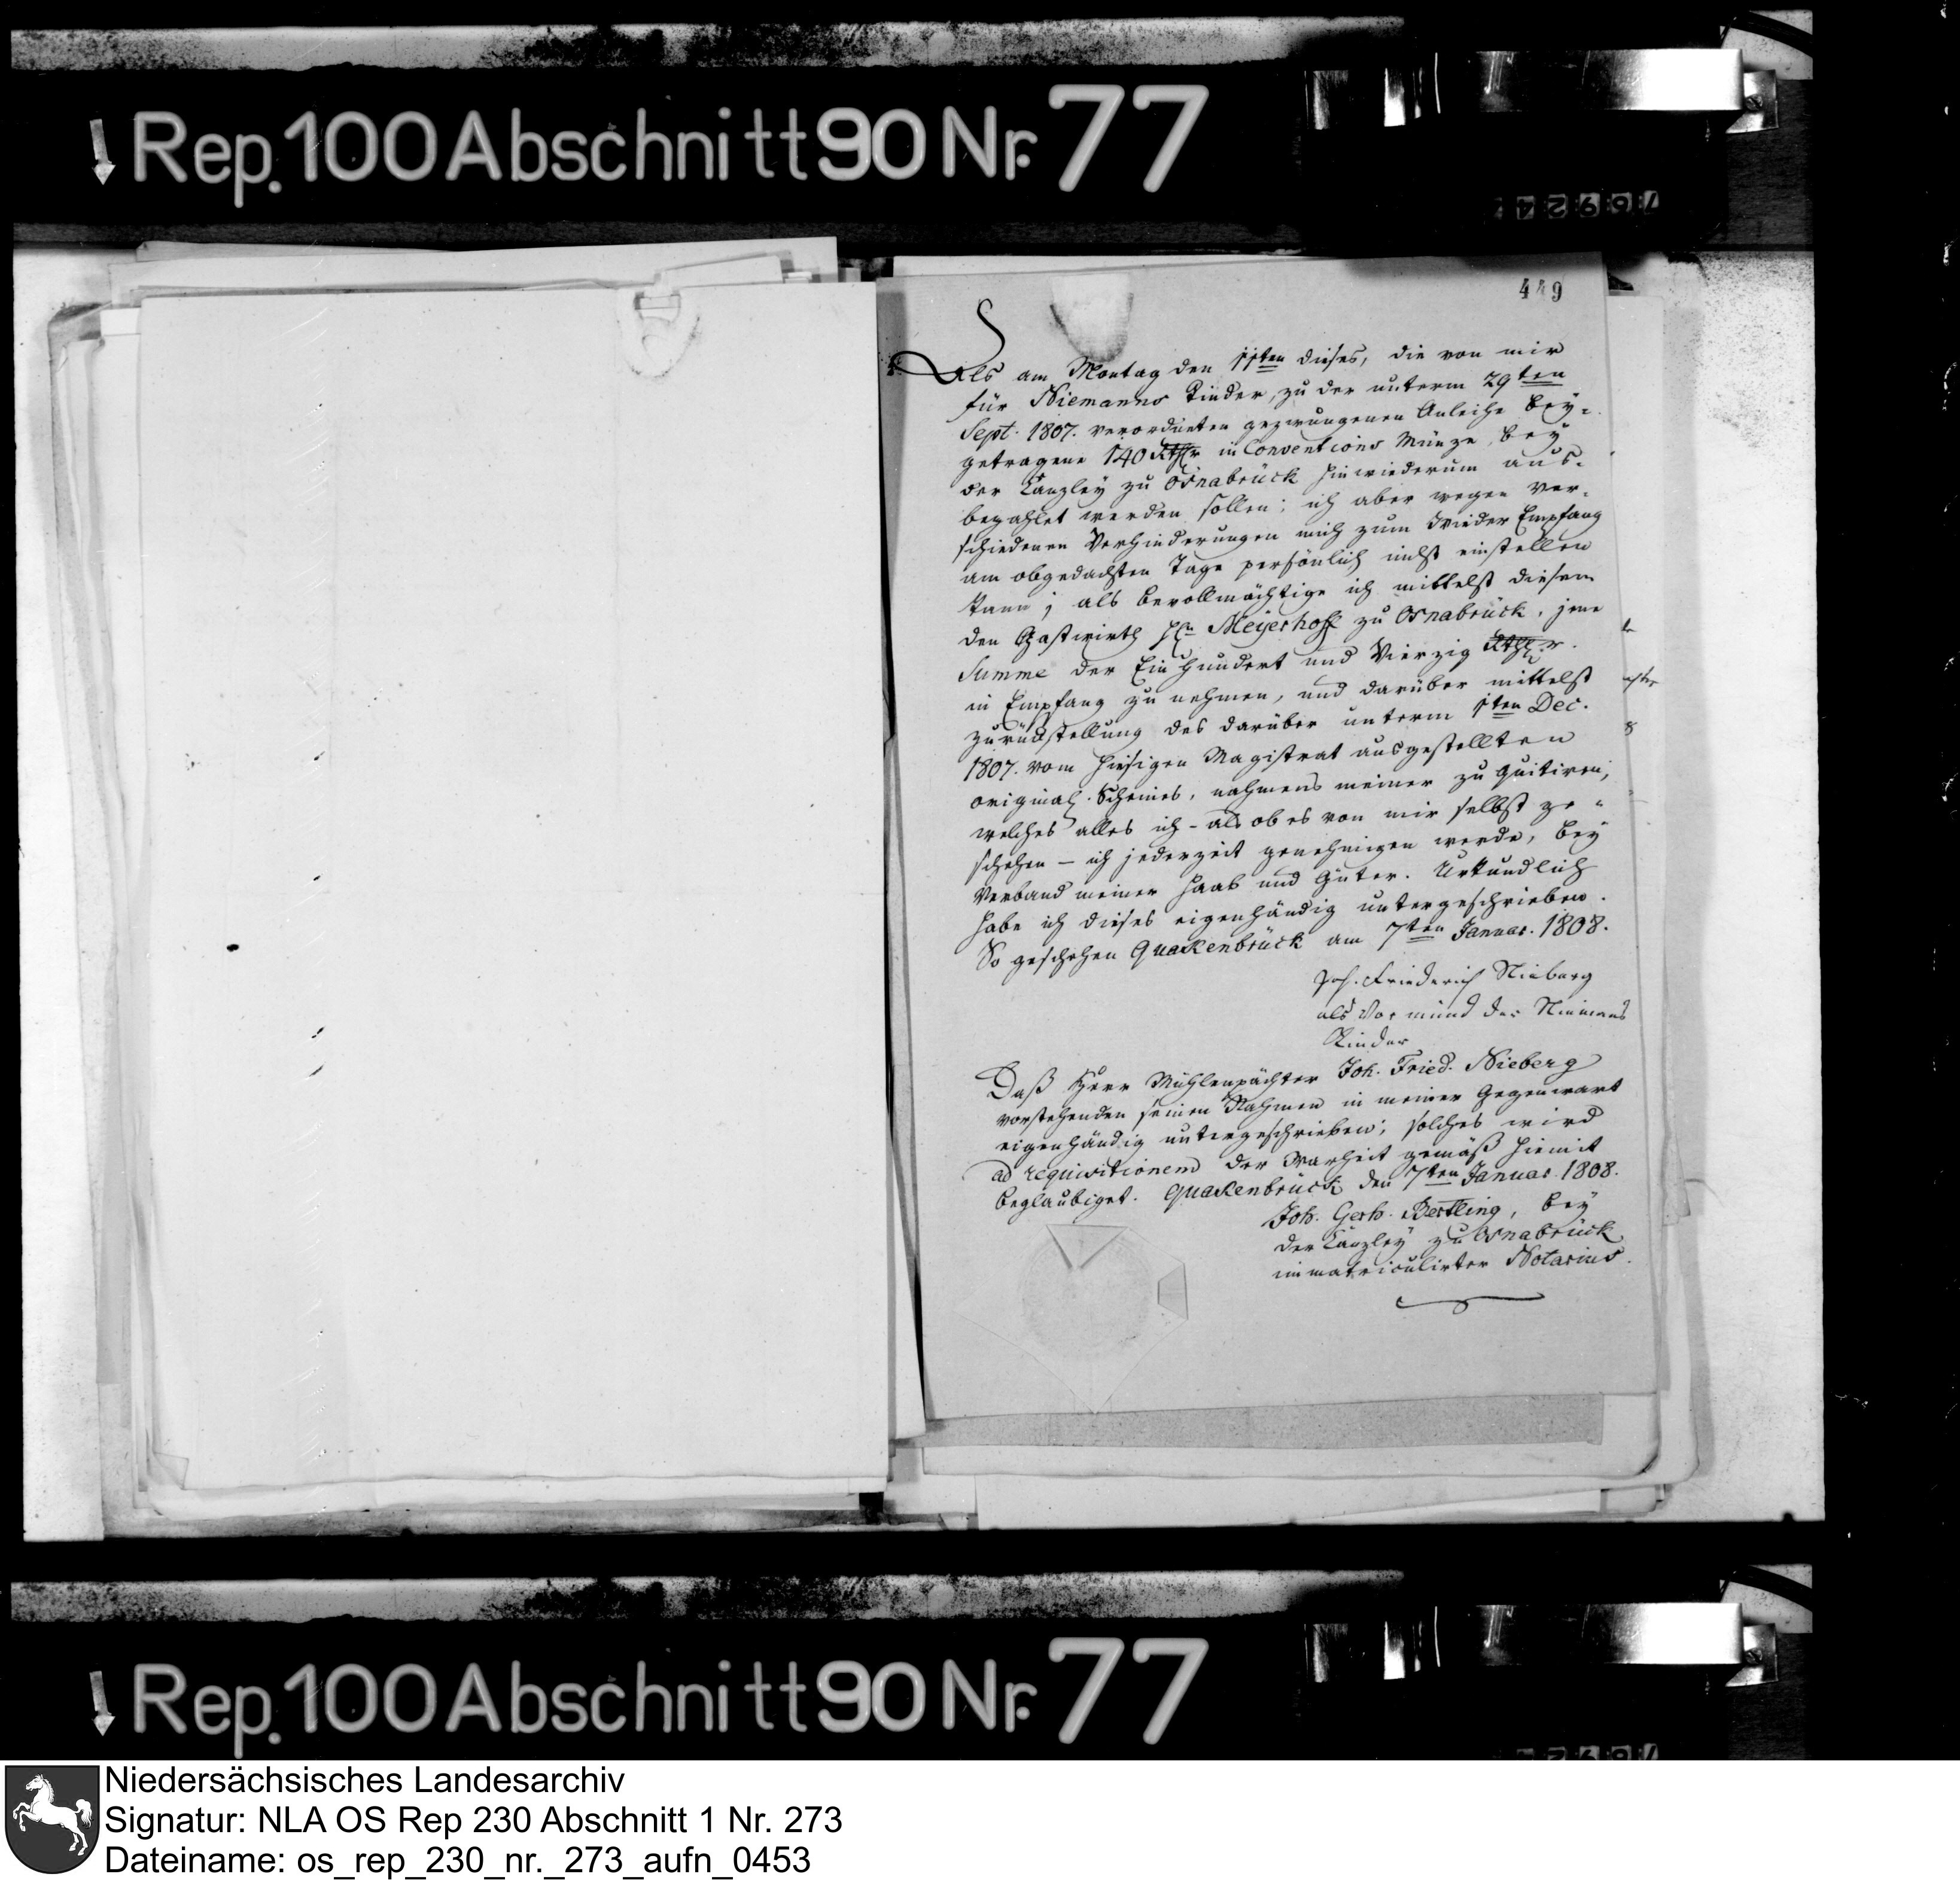 Rep. 100 Abschnitt 90 Nr. 77
449
Als am Montag den 11ten dieses, die von mir
für Niemanns Kinder, zu der unterm 29ten
Sept. 1807. verordneten gezwungenen Anleihe bey-
getragene 140 Rthlr in Conventions Münze, bey
der Canzley zu Osnabrück hinwiederum aus-
bezahlet werden sollen; ich aber wegen ver-
schiedenen Verhinderungen mich zum Wieder Empfang
am obgedachten Tage persönlich nicht einstellen
kann; als bevollmächtige ich mittelst diesem
den Gastwirth Hn Meyerhoff zu Osnabrück, jene
Summe der Ein Hundert und Vierzig Rthlr.
in Empfang zu nehmen, und darüber mittelst
zurückstellung des darüber unterm 1ten Dec.
1807. vom hiesigen Magistrat ausgestellten
original Scheines, nahmens meiner zu quitiren,
welches alles ich - als ob es von mir selbst ge-
schehen - ich jederzeit genehmigen werde, bey
Verband meiner Haab und Güter. Urkundlich
habe ich dieses eigenhändig untergeschrieben.
So geschehen Quakenbrück am 7ten Januar. 1808.
Joh. Friederich Nieberg
als Vormund der Niemans
Kinder
Daß Herr Mühlenpächter Joh. Fried. Nieberg
vorstehenden seinen Nahmen in meiner Gegenwart
eigenhändig untergeschrieben; solches wird
ad requisitionem der Warheit gemäß hiemit
beglaubiget. Quakenbrück den 7ten Januar. 1808.
Joh. Gerh. Bertling, bey
der Canzley zu Osnabrück
immatriculirter Notarius.
Rep. 100 Abschnitt 90 Nr. 77
Niedersächsisches Landesarchiv
Signatur: NLA OS Rep 230 Abschnitt 1 Nr. 273
Dateiname: os_rep_230_nr._273_aufn_0453